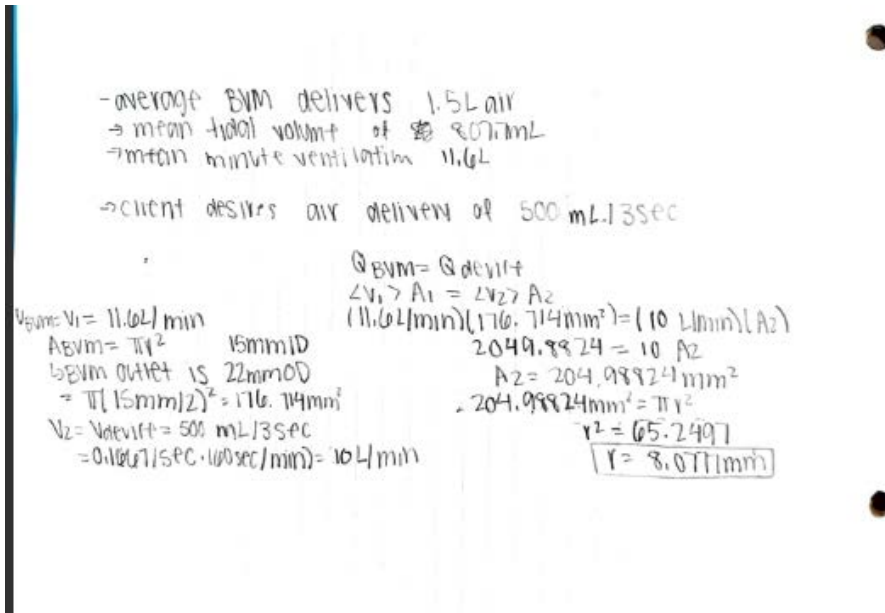 - average BVM delivers 1.5L air
→ mean tidal volume of 807.7mL
→ mean minute ventilation 11.6L
→ client desires air delivery of 500 mL/3sec
Q BVM = Q device
<V₁> A₁ = <V₂> A₂
(11.6L/min)(176.714mm²) = (10 L/min)(A₂)
2049.8824 = 10 A₂
A₂ = 204.98824 mm²
204.98824mm² = πr²
r² = 65.2497
r = 8.0777mm
V BVM = V₁ = 11.6L/min
A BVM = πr² 15mm ID
↳ BVM outlet is 22mm OD
= π(15mm/2)² = 176.714mm²
V₂ = V device = 500 mL/3sec
= 0.1667/sec · (60sec/min) = 10L/min